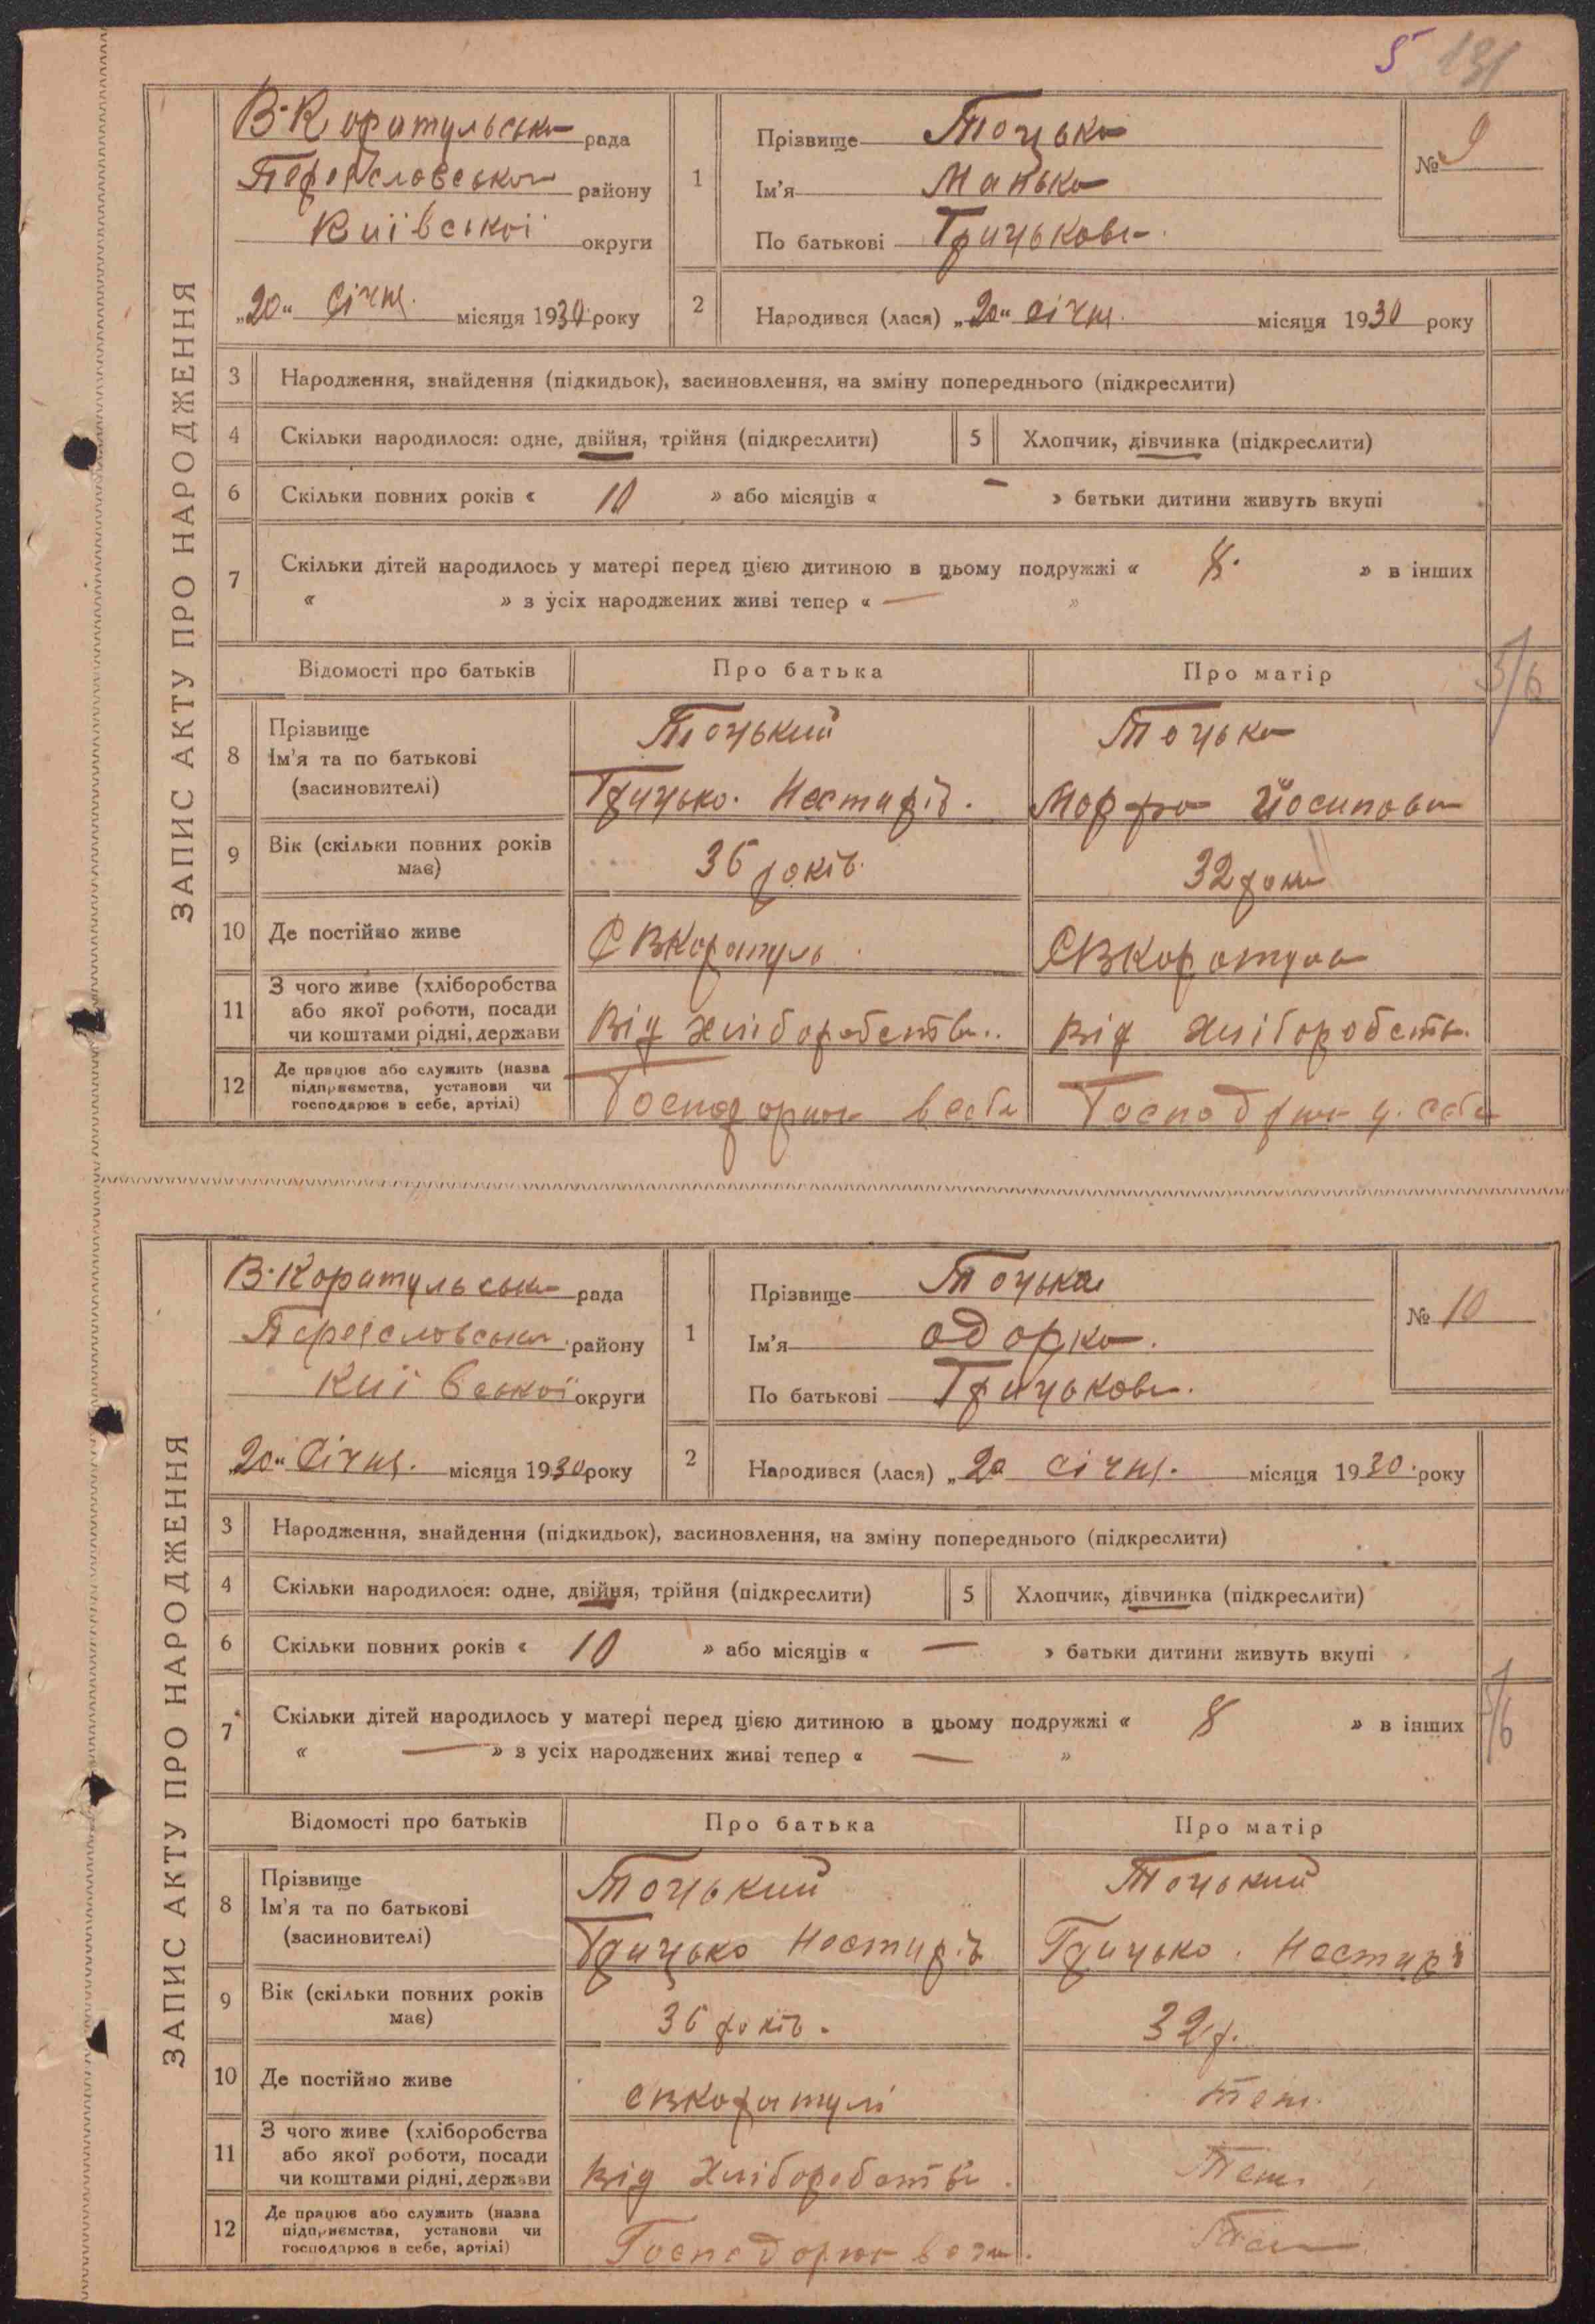 5 131
ЗАПИС АКТУ ПРО НАРОДЖЕННЯ
В-Коратульська рада
Переяславського району
Київської округи
„20“ Січня місяця 1930 року
1
Прізвище Тоцька
Ім'я Манька
По батькові Грицькова
№ 9
2
Народився (лася) „20“ січня місяця 1930 року
3 Народження, знайдення (підкидьок), засиновлення, на зміну попереднього (підкреслити)
4 Скільки народилося: одне, двійня, трійня (підкреслити) 5 Хлопчик, дівчинка (підкреслити)
6 Скільки повних років « 10 » або місяців « — » батьки дитини живуть вкупі
7 Скільки дітей народилось у матері перед цією дитиною в цьому подружжі « 8. » в інших
« » з усіх народжених живі тепер « — »
Відомості про батьків Про батька Про матір
5/6
8 Прізвище Тоцький Тоцька
Ім'я та по батькові
(засиновителі) Грицько Нестирів. Морфа Йосипова
9 Вік (скільки повних років має) 36 років. 32 роки
10 Де постійно живе С ВКоратуль СВКоратула
11 З чого живе (хліборобства
або якої роботи, посади
чи коштами рідні, держави Від Хліборобства.. Від Хліборобств.
12 Де працює або служить (назва
підприємства, установи чи
господарює в себе, артілі) Господорює в себе Господрює у себе
ЗАПИС АКТУ ПРО НАРОДЖЕННЯ
В-Коратульська рада
Переясловська району
Київської округи
„20“ Січня. місяця 1930 року
1
Прізвище Тоцька
Ім'я одорка.
По батькові Грицькова.
№ 10
2
Народився (лася) „20 січня. місяця 1930. року
3 Народження, знайдення (підкидьок), засиновлення, на зміну попереднього (підкреслити)
4 Скільки народилося: одне, двійня, трійня (підкреслити) 5 Хлопчик, дівчинка (підкреслити)
6 Скільки повних років « 10 » або місяців « — » батьки дитини живуть вкупі
7 Скільки дітей народилось у матері перед цією дитиною в цьому подружжі « 8 » в інших
« — » з усіх народжених живі тепер « — »
5/6
Відомості про батьків Про батька Про матір
8 Прізвище Тоцький Тоцький
Ім'я та по батькові
(засиновителі) Грицько Нестирів Грицько. Нестирів
9 Вік (скільки повних років має) 36 років. 32 р.
10 Де постійно живе свкоратулі теж.
11 З чого живе (хліборобства
або якої роботи, посади
чи коштами рідні, держави Від Хліборобства. Теж
12 Де працює або служить (назва
підприємства, установи чи
господарює в себе, артілі) Господорює Теж